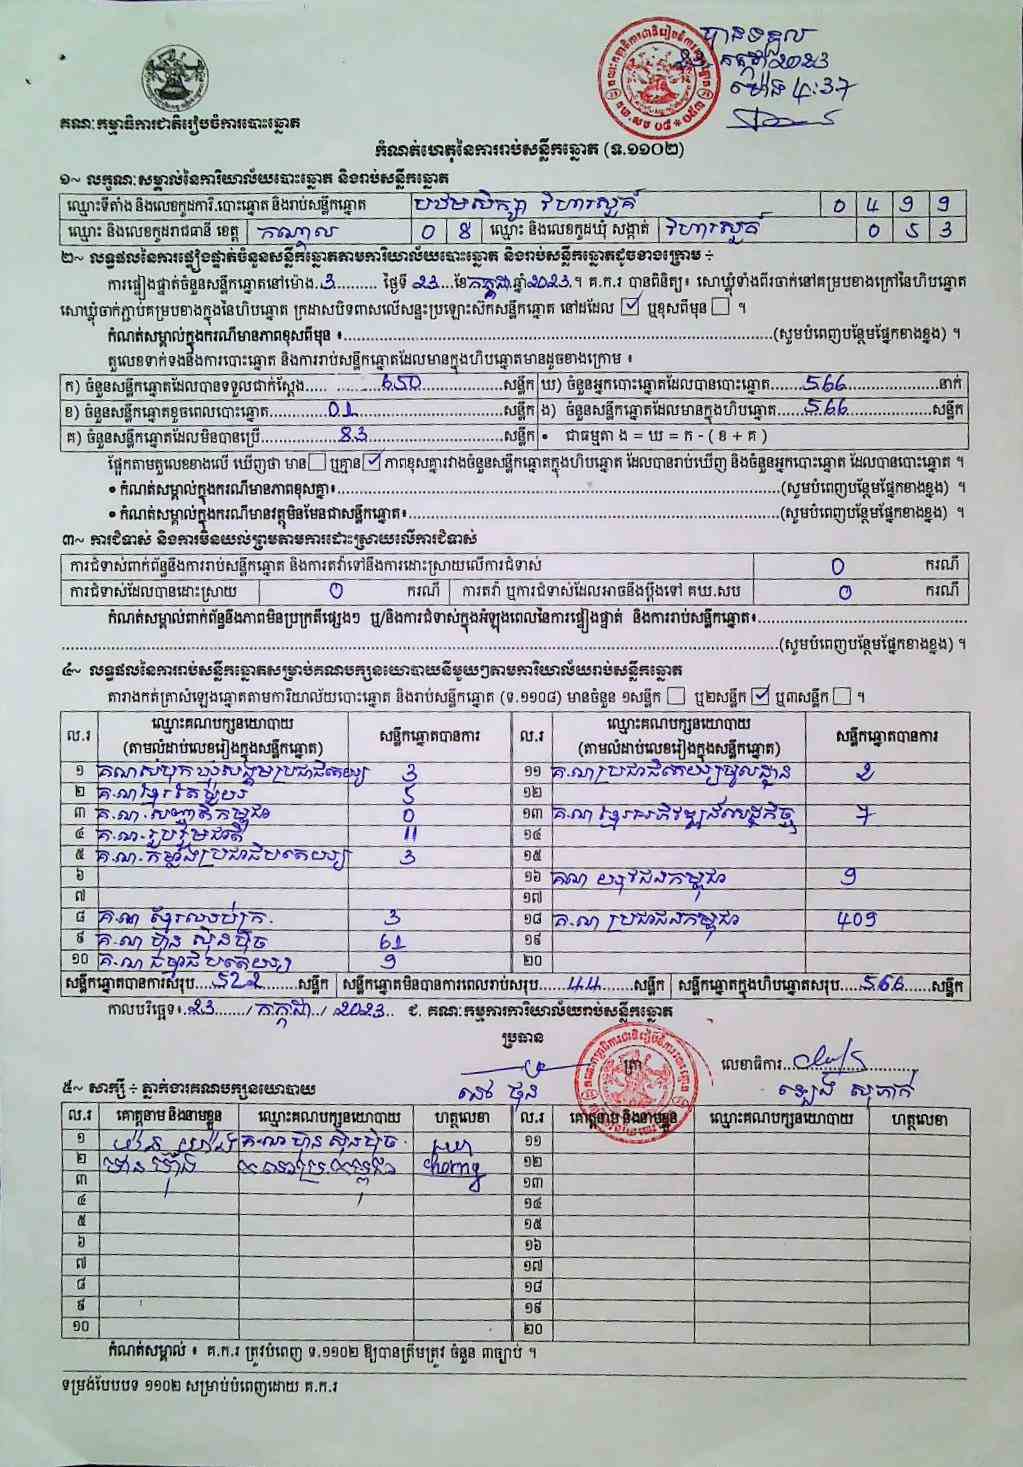 បានទទួល
23 កក្កដា 2023
ម៉ោង 4:37
គណៈកម្មាធិការជាតិរៀបចំការបោះឆ្នោត
កំណត់ហេតុនៃការរាប់សន្លឹកឆ្នោត (ទ.១១០២)
១~ លក្ខណៈសម្គាល់នៃការិយាល័យបោះឆ្នោត និងរាប់សន្លឹកឆ្នោត
ឈ្មោះទីតាំង និងលេខកូដការិ.បោះឆ្នោត និងរាប់សន្លឹកឆ្នោត បឋមសិក្សា វិហារសួគ៌ 0 4 9 9
ឈ្មោះ និងលេខកូដរាជធានី ខេត្ត កណ្តាល 0 8 ឈ្មោះ និងលេខកូដឃុំ សង្កាត់ វិហារសួគ៌ 0 5 3
២~ លទ្ធផលនៃការផ្ទៀងផ្ទាត់ចំនួនសន្លឹកឆ្នោតតាមការិយាល័យបោះឆ្នោត និងរាប់សន្លឹកឆ្នោតដូចខាងក្រោម ÷
ការផ្ទៀងផ្ទាត់ចំនួនសន្លឹកឆ្នោតនៅម៉ោង.3......... ថ្ងៃទី 23...ខែកក្កដា.ឆ្នាំ2023.។ គ.ក.រ បានពិនិត្យ៖ សោឃ្លុំទាំងពីរចាក់នៅគម្របខាងក្រៅនៃហិបឆ្នោត
សោឃ្លុំចាក់ភ្ជាប់គម្របខាងក្នុងនៃហិបឆ្នោត ក្រដាសបិទពាសលើសន្ទះប្រឡោះស៊កសន្លឹកឆ្នោត នៅដដែល ☑ ឬខុសពីមុន ☐ ។
កំណត់សម្គាល់ក្នុងករណីមានភាពខុសពីមុន ៖..........(សូមបំពេញបន្ថែមផ្នែកខាងខ្នង) ។
តួលេខទាក់ទងនឹងការបោះឆ្នោត និងការរាប់សន្លឹកឆ្នោតដែលមានក្នុងហិបឆ្នោតមានដូចខាងក្រោម ៖
ក) ចំនួនសន្លឹកឆ្នោតដែលបានទទួលជាក់ស្តែង..... 650 .....សន្លឹក ឃ) ចំនួនអ្នកបោះឆ្នោតដែលបានបោះឆ្នោត.....566.....នាក់
ខ) ចំនួនសន្លឹកឆ្នោតខូចពេលបោះឆ្នោត.....01.....សន្លឹក ង) ចំនួនសន្លឹកឆ្នោតដែលមានក្នុងហិបឆ្នោត.....566.....សន្លឹក
គ) ចំនួនសន្លឹកឆ្នោតដែលមិនបានប្រើ.....83.....សន្លឹក • ជាធម្មតា ង = ឃ = ក - ( ខ + គ )
ផ្អែកតាមតួលេខខាងលើ ឃើញថា មាន ☐ ឬគ្មាន ☑ ភាពខុសគ្នារវាងចំនួនសន្លឹកឆ្នោតក្នុងហិបឆ្នោត ដែលបានរាប់ឃើញ និងចំនួនអ្នកបោះឆ្នោត ដែលបានបោះឆ្នោត ។
• កំណត់សម្គាល់ក្នុងករណីមានភាពខុសគ្នា៖..........(សូមបំពេញបន្ថែមផ្នែកខាងខ្នង) ។
• កំណត់សម្គាល់ក្នុងករណីមានវត្ថុមិនមែនជាសន្លឹកឆ្នោត៖..........(សូមបំពេញបន្ថែមផ្នែកខាងខ្នង) ។
៣~ ការជំទាស់ និងការមិនយល់ព្រមតាមការដោះស្រាយលើការជំទាស់
ការជំទាស់ពាក់ព័ន្ធនឹងការរាប់សន្លឹកឆ្នោត និងការតវ៉ាទៅនឹងការដោះស្រាយលើការជំទាស់ 0 ករណី
ការជំទាស់ដែលបានដោះស្រាយ 0 ករណី ការតវ៉ា ឬការជំទាស់ដែលអាចនឹងប្តឹងទៅ គឃ.សប 0 ករណី
កំណត់សម្គាល់ពាក់ព័ន្ធនឹងភាពមិនប្រក្រតីផ្សេងៗ ឬ/និងការជំទាស់ក្នុងអំឡុងពេលនៃការផ្ទៀងផ្ទាត់ និងការរាប់សន្លឹកឆ្នោត៖..........
..........(សូមបំពេញបន្ថែមផ្នែកខាងខ្នង) ។
៤~ លទ្ធផលនៃការរាប់សន្លឹកឆ្នោតសម្រាប់គណបក្សនយោបាយនីមួយៗតាមការិយាល័យរាប់សន្លឹកឆ្នោត
តារាងកត់ត្រាសំឡេងឆ្នោតតាមការិយាល័យបោះឆ្នោត និងរាប់សន្លឹកឆ្នោត (ទ.១១០៨) មានចំនួន ១សន្លឹក ☐ ឬ២សន្លឹក ☑ ឬ៣សន្លឹក ☐ ។
ល.រ ឈ្មោះគណបក្សនយោបាយ (តាមលំដាប់លេខរៀងក្នុងសន្លឹកឆ្នោត) សន្លឹកឆ្នោតបានការ ល.រ ឈ្មោះគណបក្សនយោបាយ (តាមលំដាប់លេខរៀងក្នុងសន្លឹកឆ្នោត) សន្លឹកឆ្នោតបានការ
១ គណសំបុកឃ្មុំសង្គមប្រជាធិបតេយ្យ 3 ១១ គ.ណ ប្រជាធិបតេយ្យមូលដ្ឋាន 2
២ គ.ណ ខ្មែររួមគ្នា 5 ១២
៣ គ.ណ. សញ្ជាតិកម្ពុជា 0 ១៣ គ.ណ ខ្មែរអភិវឌ្ឍន៍សេដ្ឋកិច្ច 7
៤ គ.ណ. រួបរួមជាតិ 11 ១៤
៥ គ.ណ. កម្លាំងប្រជាធិបតេយ្យ 3 ១៥
៦ ១៦ គណ យុវជនកម្ពុជា 9
៧ ១៧
៨ គ.ណ ខ្មែរឈប់ក្រ. 3 ១៨ គ.ណ ប្រជាជនកម្ពុជា 409
៩ គ.ណ ហ្វ៊ុនស៊ិនប៉ិច 61 ១៩
១០ គ.ណ ធម្មាធិបតេយ្យ 9 ២០
សន្លឹកឆ្នោតបានការសរុប.....522.....សន្លឹក សន្លឹកឆ្នោតមិនបានការពេលរាប់សរុប.....44.....សន្លឹក សន្លឹកឆ្នោតក្នុងហិបឆ្នោតសរុប.....566.....សន្លឹក
កាលបរិច្ឆេទ៖.23....../ កក្កដា../ 2023.. ជ. គណៈកម្មការការិយាល័យរាប់សន្លឹកឆ្នោត
ប្រធាន
ត្រា លេខាធិការ..........
៥~ សាក្សី ÷ ភ្នាក់ងារគណបក្សនយោបាយ
ល.រ គោត្តនាម និងនាមខ្លួន ឈ្មោះគណបក្សនយោបាយ ហត្ថលេខា ល.រ គោត្តនាម និងនាមខ្លួន ឈ្មោះគណបក្សនយោបាយ ហត្ថលេខា
១ គ.ណ ហ្វ៊ុនស៊ិនប៉ិច ១១
២ chorng ១២
៣ ១៣
៤ ១៤
៥ ១៥
៦ ១៦
៧ ១៧
៨ ១៨
៩ ១៩
១០ ២០
កំណត់សម្គាល់ ៖ គ.ក.រ ត្រូវបំពេញ ទ.១១០២ ឱ្យបានត្រឹមត្រូវ ចំនួន ៣ច្បាប់ ។
ទម្រង់បែបបទ ១១០២ សម្រាប់បំពេញដោយ គ.ក.រ